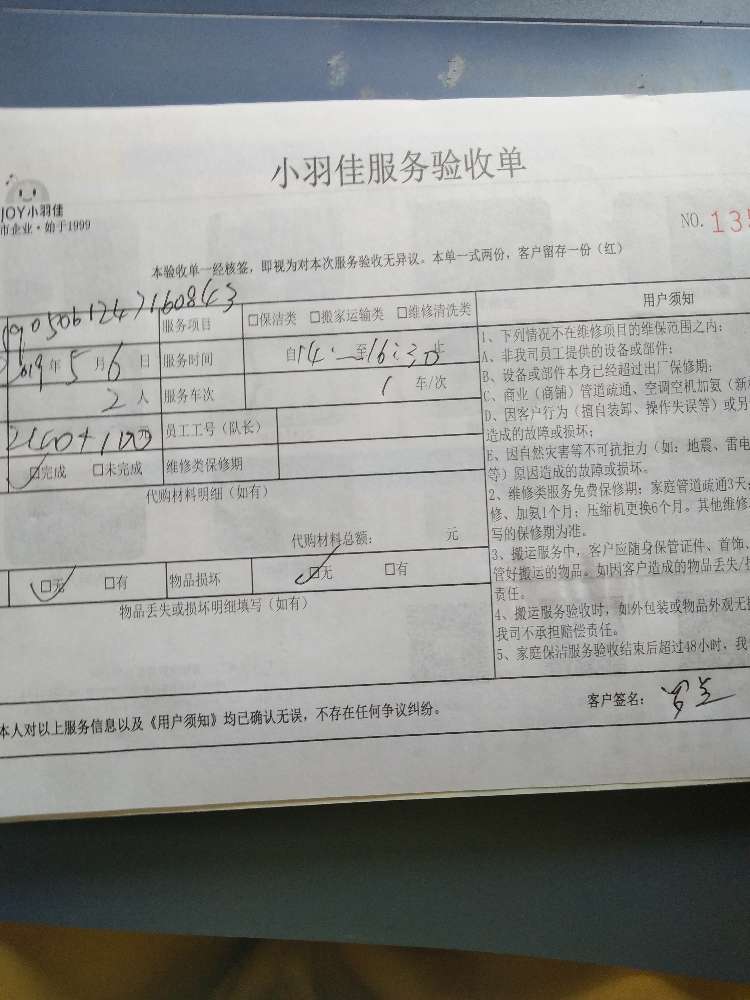 小羽佳服务验收单
JOY小羽佳
市企业·始于1999
NO. 135
本验收单一经核签，即视为对本次服务验收无异议。本单一式两份，客户留存一份（红）
190506124716084 3
服务项目 □保洁类 □搬家运输类 □维修清洗类
2019年5月6日 服务时间 自14:—至16:30止
2人 服务车次 1 车/次
员工工号（队长）
□完成 □未完成 维修类保修期
代购材料明细（如有）
代购材料总额： 元
□无 □有 物品损坏 □无 □有
物品丢失或损坏明细填写（如有）
用户须知
1、下列情况不在维修项目的维保范围之内：
A、非我司员工提供的设备或部件；
B、设备或部件本身已经超过出厂保修期；
C、商业（商铺）管道疏通、空调空机加氨（新
D、因客户行为（擅自装卸、操作失误等）或另
造成的故障或损坏；
E、因自然灾害等不可抗拒力（如：地震、雷电
等）原因造成的故障或损坏。
2、维修类服务免费保修期：家庭管道疏通3天；
修、加氨1个月；压缩机更换6个月。其他维修
写的保修期为准。
3、搬运服务中，客户应随身保管证件、首饰、
管好搬运的物品。如因客户造成的物品丢失/
责任。
4、搬运服务验收时，如外包装或物品外观无
我司不承担赔偿责任。
5、家庭保洁服务验收结束后超过48小时，我
本人对以上服务信息以及《用户须知》均已确认无误，不存在任何争议纠纷。
客户签名：